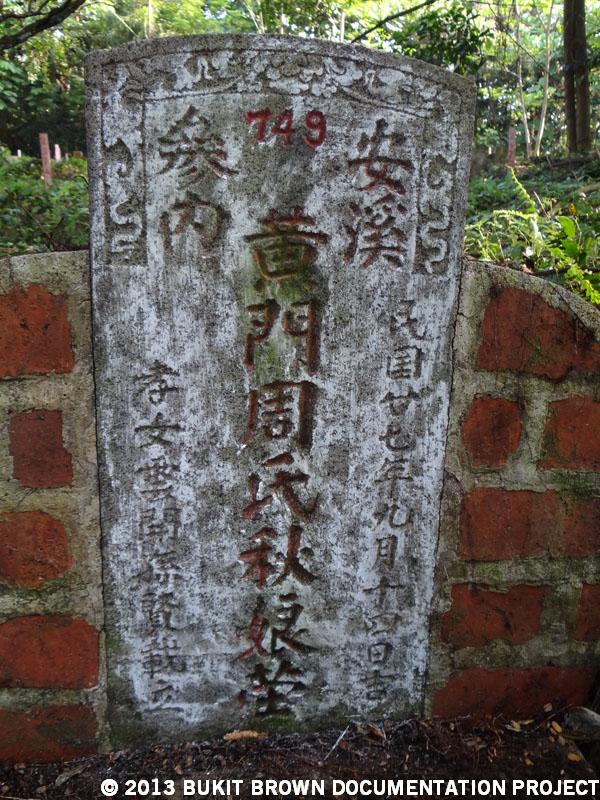 749
安溪
參内
民国廿七年九月十四日吉
黃門周氏秋娘塋
孝女雲開孫贊載立
© 2013 BUKIT BROWN DOCUMENTATION PROJECT